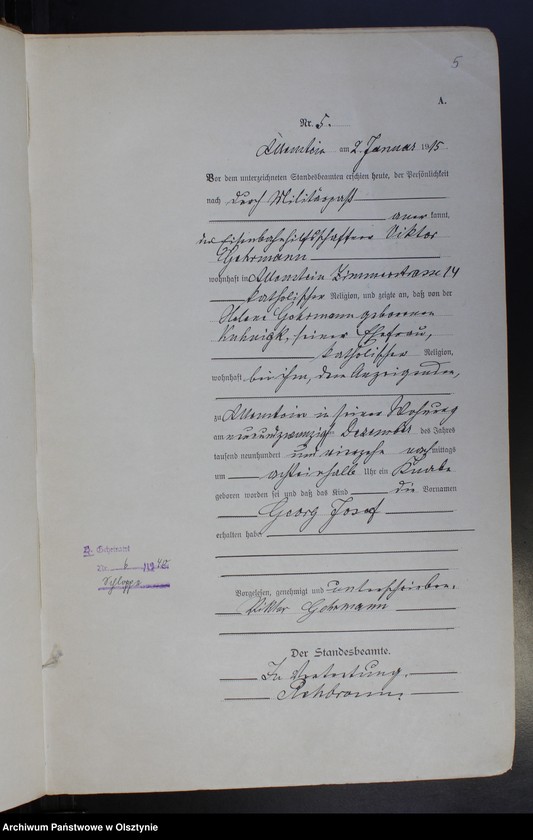 5
A.
Nr. 5.
Allenstein am 2. Januar 1915
Vor dem unterzeichneten Standesbeamten erschien heute, der Persönlichkeit
nach durch Militärpaß
aner kannt,
der Eisenbahnhilfsschaffner Viktor
Gehrmann
wohnhaft in Allenstein Zimmerstrasse 14
katholischer Religion, und zeigte an, daß von der
Helene Gehrmann geborenen
Kuhnigk, seiner Ehefrau,
katholischer Religion,
wohnhaft bei ihm, dem Anzeigenden,
zu Allenstein in seiner Wohnung
am neunundzwanzigst Dezember des Jahres
tausend neunhundert und vierzehn nachmittags
um achteinhalb Uhr ein Knabe
geboren worden sei und daß das Kind die Vornamen
Georg Josef
erhalten habe
Vorgelesen, genehmigt und unterschrieben.
Viktor Gehrmann
Der Standesbeamte.
In Vertretung.
Archiwum Państwowe w Olsztynie